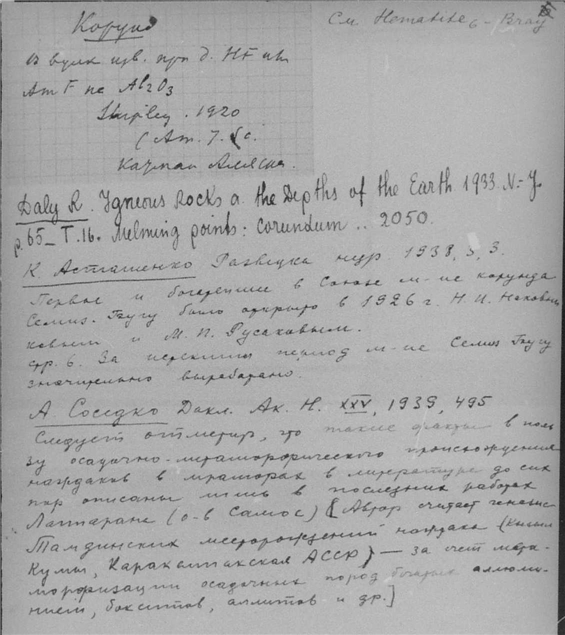 Корунд
См Hematite Bray
в вулк изв. при д. HF или
Am F на Al2O3
Shipley. 1920
(Am. J. Sc.
Катмаи Аляска.
Daly R. Igneous Rocks a. the Depths of the Earth 1933. N-Y.
p. 65_ T. 16. Melming points: corundum .. 2050.
К. Асташенко Разведка недр. 1938, 3, 3.
Первое и богатейшее в Союзе м-ие корунда
Семиз-Бугу было открыто в 1926 г. Н. И. Наков
ковым и М. П. Русаковым.
стр. 6. За истекший период м-ие Семиз Бугу
значительно выработано.
А Соседко Докл. Ак. Н. XXV, 1939, 495
Следует отметить, что такие факты в поль
зу осадочно-метаморфического происхождения
наждаков в мраморах в литературе до сих
пор описаны лишь в последних работах
Лаппарана (о-в Самос) [Автор считает генезис
Тамдинских месторождений наждака (Кызыл
Кумы, Каракалпакская АССР) — за счет мета-
морфизации осадочных пород богатых аллюми-
нием, бокситов, аллитов и др.]